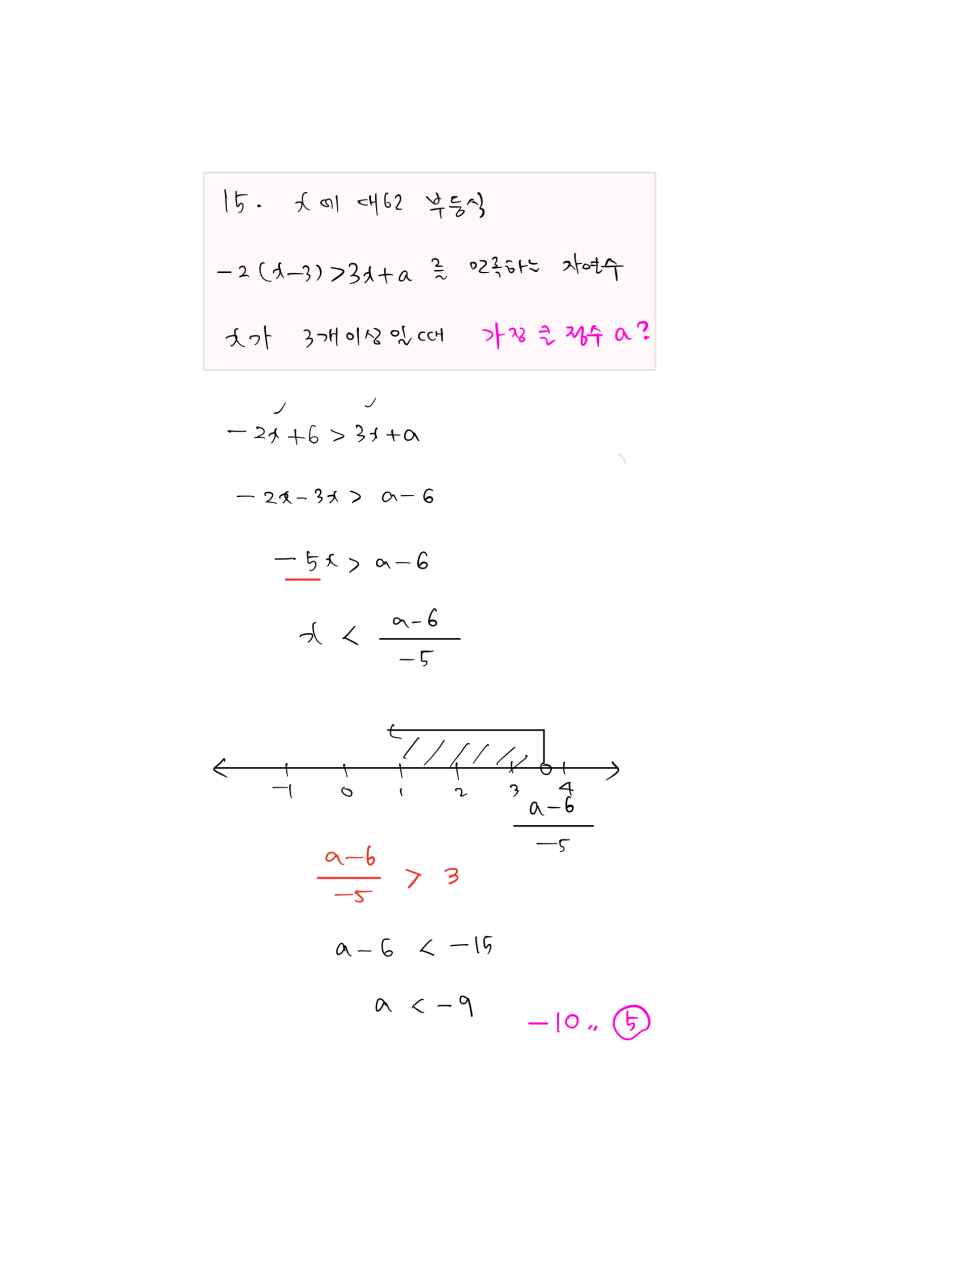 15. x에 대한 부등식
-2(x-3)>3x+a 를 만족하는 자연수
x가 3개이상일때 가장 큰 정수 a?
-2x+6>3x+a
-2x-3x> a-6
-5x> a-6
x < (a-6)/(-5)
-1 0 1 2 3 4
(a-6)/(-5)
(a-6)/(-5) > 3
a-6 < -15
a < -9
-10,, ⑤